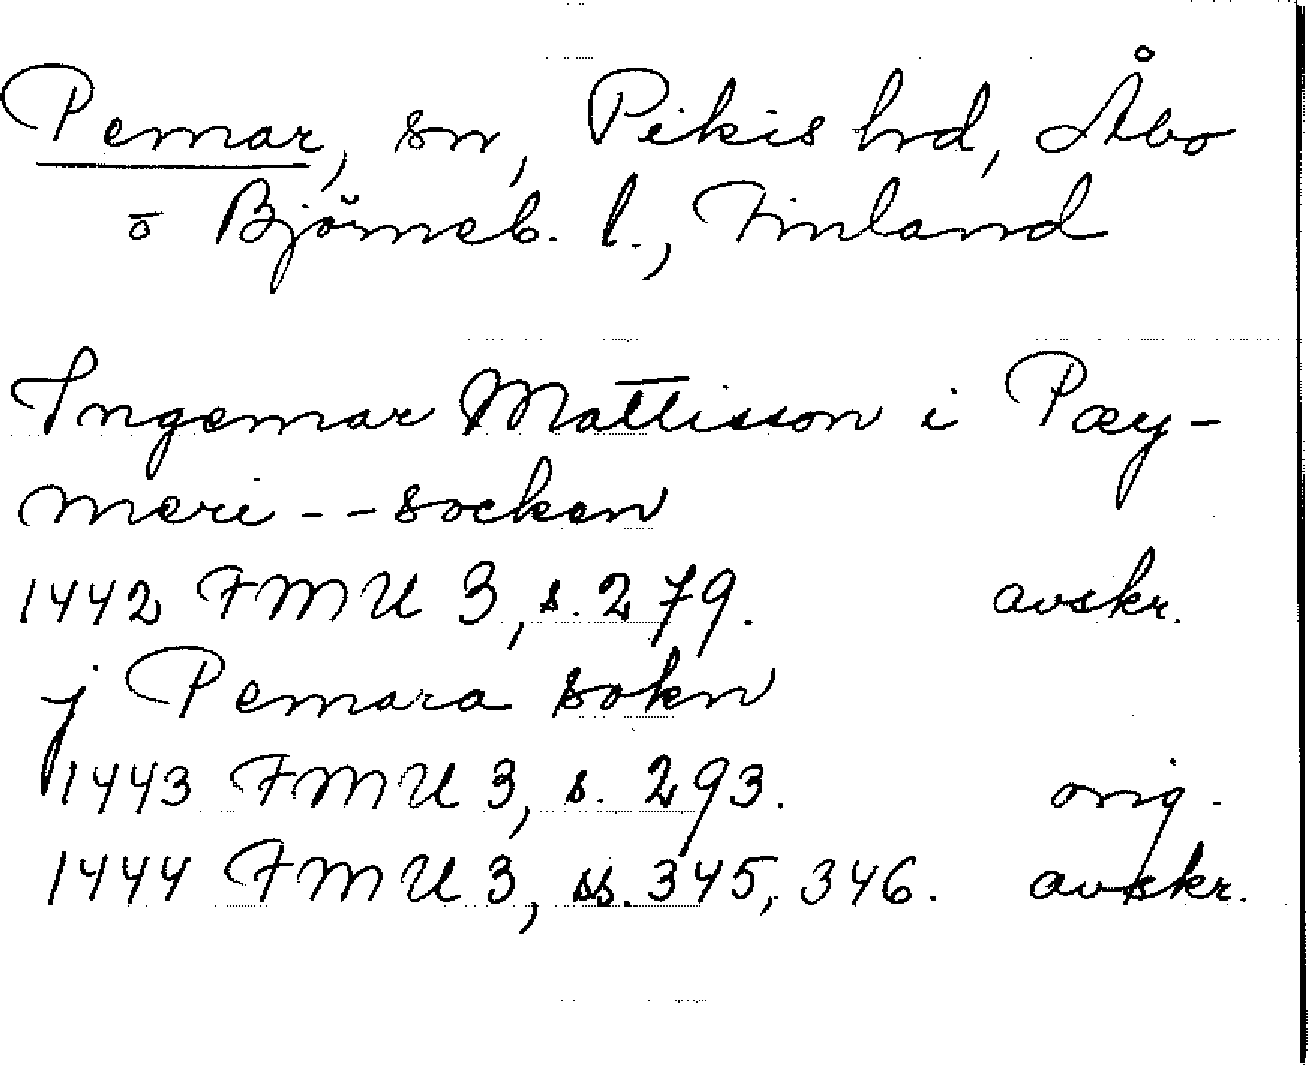 Pemar, sn, Pikis hrd, Åbo
o Björneb. l., Finland
Ingemar Mattisson i Pæy-
meri - - socken
1442 FMU 3, s. 279. avskr.
j Pemara sokn
1443 FMU 3, s. 293. orig.
1444 FMU 3, ss. 345, 346. avskr.